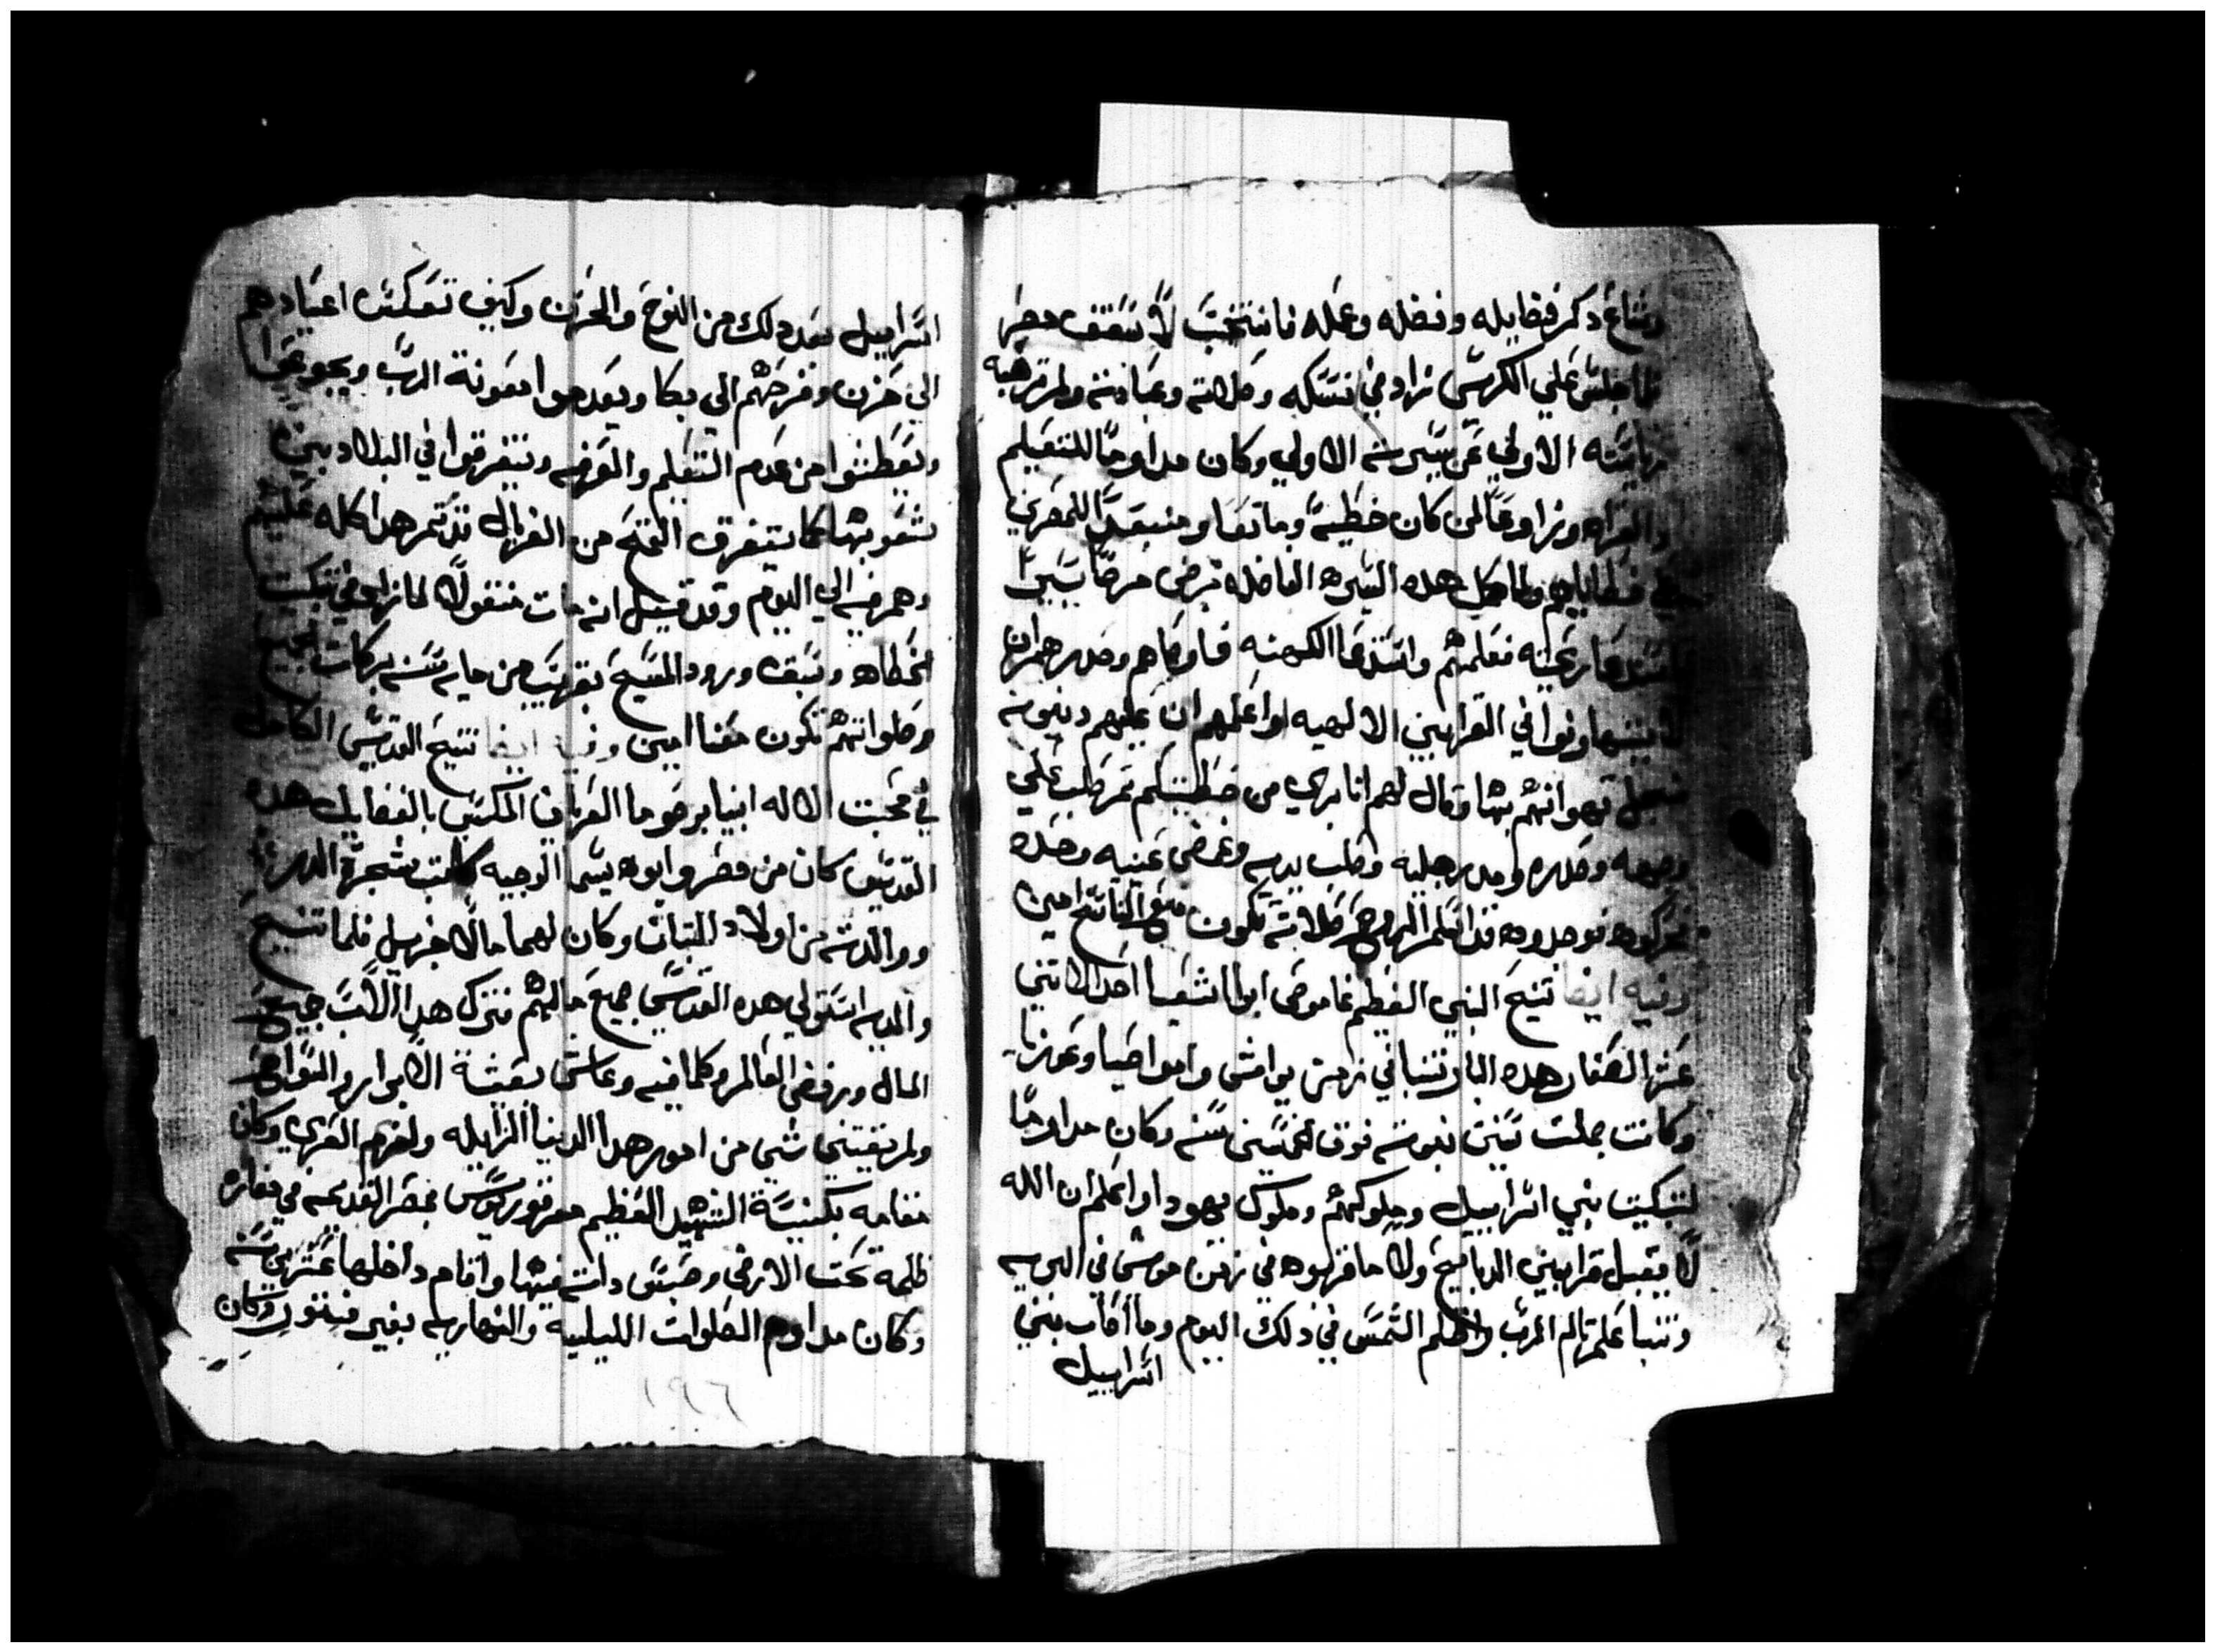 وشاع دكر فضايله ونضله وعمله فانتخب لاسقف مصر
لما جلس علي الكرسي زاد في نسكه وصلاته وعبادته ولم ترهبه
رياسته الاولي عن سيرته الاولي وكان مداوما للتعليم
والقراه وزاوعا لمن كان خطية وما تعا ومنبعدا للمصرين
علي خطاياهم ولما كمل هده السيره الفاضله مرض مرضا يسيرا
فاستدعا رعيته فعلمهم واستدعا الكهنه فاوصاهم وحدرهم ان
لا يتهاونوا في القرابين الالهيه او اعلمهم ان عليهم دينونه
تهوانهم بها وقال لهم انا بري من خطيتكم تم صلب علي
وجهه وصدره ومد رجليه وصلب يديه وغمض عنيه وحده
تركوه فوجدوه قد اسلم الروح صلاته تكون مع الناسخ امين
وفيه ايضا تنيح النبي العظيم عاموص ابوا اشعيا احد الاتني
عشر الصغار هده البار تنبا في زمن يواش وابو اصيا وعوزيا
وكانت جملت سنين نبوته فوق خمسين سنه وكان مداوما
لتبكيت بني اسراييل وملوكهم وملوك يهودا واعلم ان الله
لا يقبل قرابين الدبايح ولا ما قربوه في زمن موسي في البريه
وتنبا علي تالم الرب واظلم الشمس في دلك اليوم وما اصاب بني
اسراييل
اسراييل بعد دلك من النوح والحزن وكيف تعكست اعيادهم
الي حزن وفرحهم الي بكا ويعدموا معونة الرب ويجوعوا
ويعطشوا من عدم التعليم والمعرفه ويتفرقوا في البلاد بين
شعوبها كما يتفرق القمح من الغربال تم تم هدا كله عليهم
وهم فيه الي اليوم وقد قيل انه مات مقتولا لما زاد في تبكيت
الخطاه وسبق ورود المسيح بقريب من مايه سنه بركات الجميع
وصلواتهم تكون معنا امين وفيه ايضا تنيح القديس الكامل
في محبت الاله انبا برصوما العريان المكتسي بالفضايل هده
القديس كان من مصر وابوه يسما الوجيه كاتب شجرة الدر
ووالدته من اولاد التبان وكان لهما مالا جزيل فلما تنيح
والديه استولي هده القديس جميع مالهم فترك هدا الاب جميع
المال ورفض العالم وكلما فيه وعاش بعيشة الابرار والسواح
ولم يقتني شي من امور هدا الدنيا الزايله ولزم العري وكان
مقامه بكنيسة الشهيد العظيم مرقوريوس بمصر القديمه في مغاره
ظلمه تحت الارض وحبس داته فيها واقام داخلها عشرين سنه
وكان مداوم الصلوات الليليه والنهاريه بغير فتور وكان
١٩٦